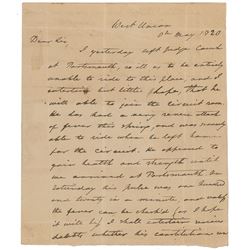 West Union
8th May 1820
Dear Sir
I yesterday left Judge
at Portsmouth, so ill as to be entirely
unable to ride to this place, and I
entertain but little hope, that he
will be able to join the circuit soon.
He has had a very severe attack
of fever this spring, and was scarcely
able to ride when he left home
for the circuit. He appeared to
gain health and strength until
we arrived at Portsmouth. On
Saturday his pulse was one hundred
and twenty in a minute, and unless
the fever can be checked (as I hope
it will be) I shall entertain serious
doubts, whether his constitution